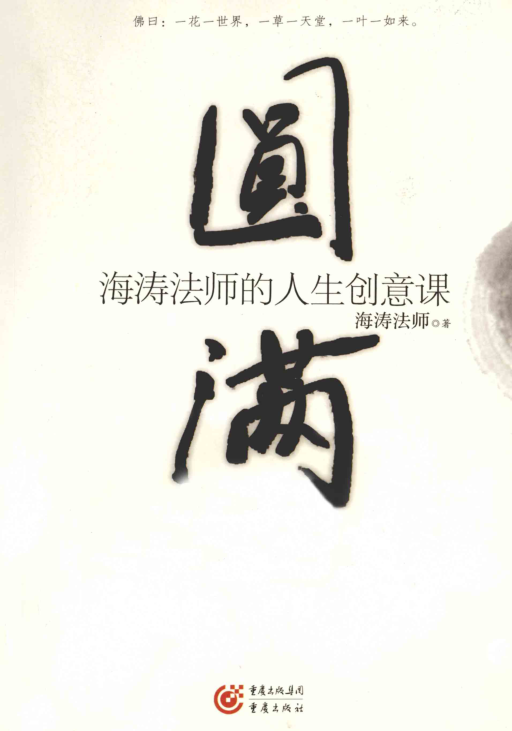 佛曰：一花一世界，一草一天堂，一叶一如来。
圓
海涛法师的人生创意课
海涛法师◎著
满
重庆出版集团
重庆出版社